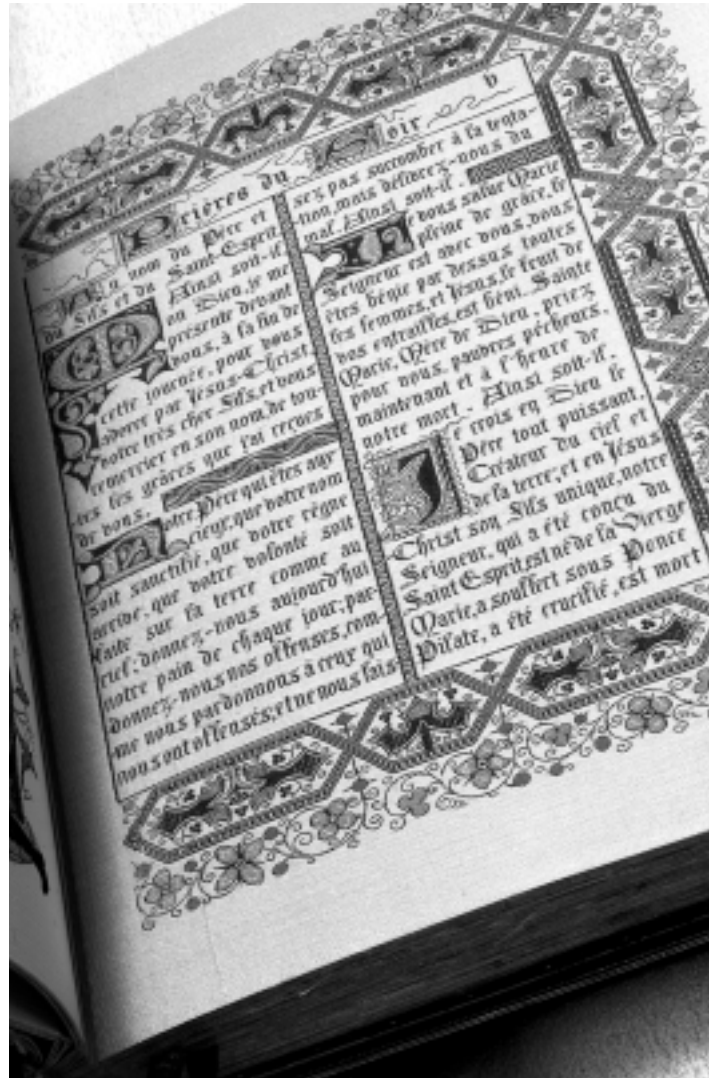 Prières du Soir
v
Au nom du Père et
du Fils et du Saint-Esprit.
Ainsi soit-il.
Mon Dieu, je me
présente devant
vous, à la fin de
cette journée, pour vous
adorer par Jésus-Christ,
votre très cher Fils, et vous
remercier en son nom, de tou-
tes les grâces que j'ai reçues
de vous.
Notre Père qui êtes aux
cieux, que votre nom
soit sanctifié, que votre règne
arrive, que votre volonté soit
faite sur la terre comme au
ciel; donnez-nous aujourd'hui
notre pain de chaque jour; par-
donnez-nous nos offenses, com-
me nous pardonnons à ceux qui
nous ont offensés; et ne nous lais
sez pas succomber à la tenta-
tion, mais délivrez-nous du
mal. Ainsi soit-il.
Je vous salue Marie
pleine de grâce, le
Seigneur est avec vous, vous
êtes bénie par dessus toutes
les femmes, et Jésus, le fruit de
vos entrailles, est béni. Sainte
Marie, Mère de Dieu, priez
pour nous, pauvres pécheurs,
maintenant et à l'heure de
notre mort. Ainsi soit-il.
Je crois en Dieu le
Père tout puissant,
Créateur du ciel et
de la terre; et en Jésus
Christ son Fils unique, notre
Seigneur, qui a été conçu du
Saint Esprit, est né de la Vierge
Marie, a souffert sous Ponce
Pilate, a été crucifié, est mort